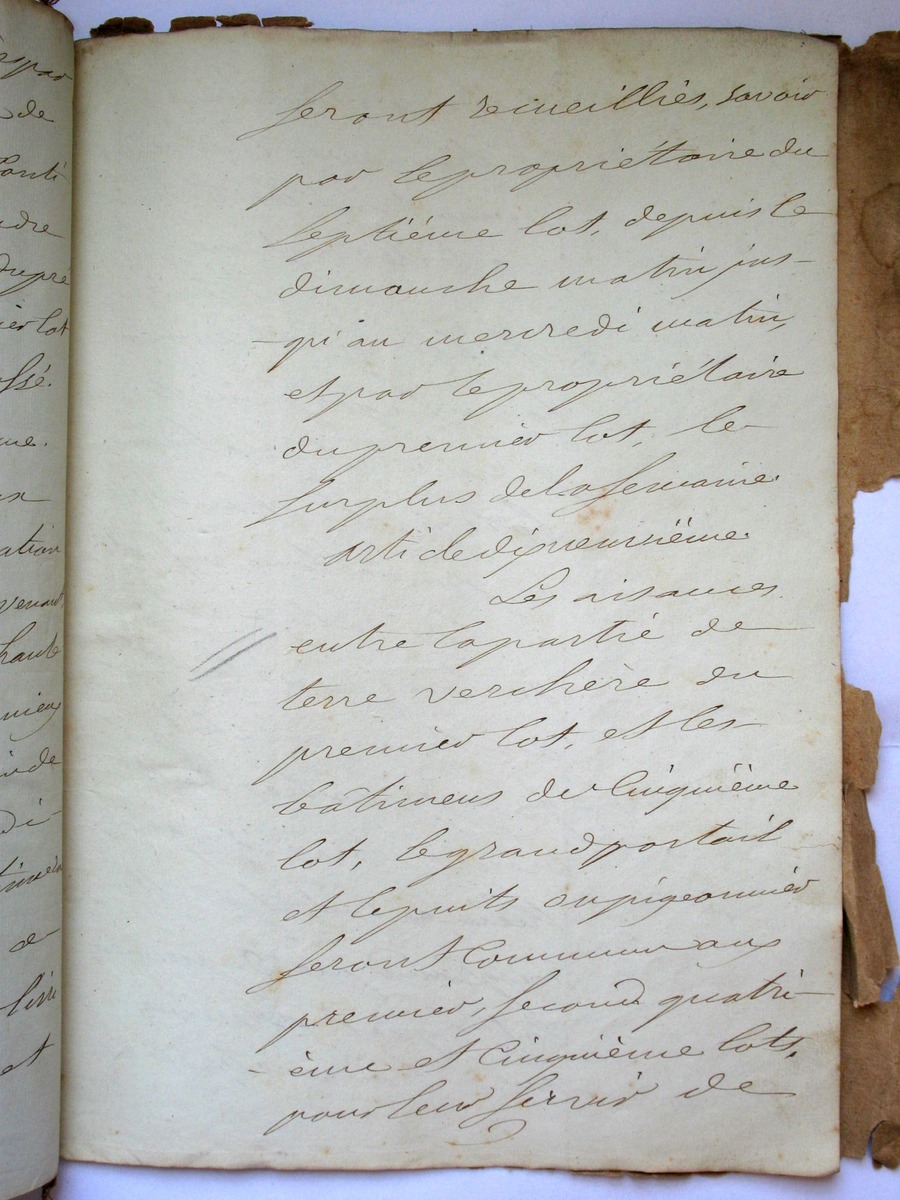 seront recueilliés, savoir
par le propriétaire du
septiéme lot, depuis le
dimanche matin jus-
-qu'au mercredi matin,
et par le propriétaire
du premier lot, le
surplus de la semaine.
article dixneuvième.
Les aisances
entre la partie de
terre verchère du
premier lot, et les
bâtimens du cinquième
lot, le grand portail
et le puits
seront communs aux
premier, second quatri-
-ème et cinquième lots,
pour leur servir de
de
ndre
lot
ation
haute
de
et